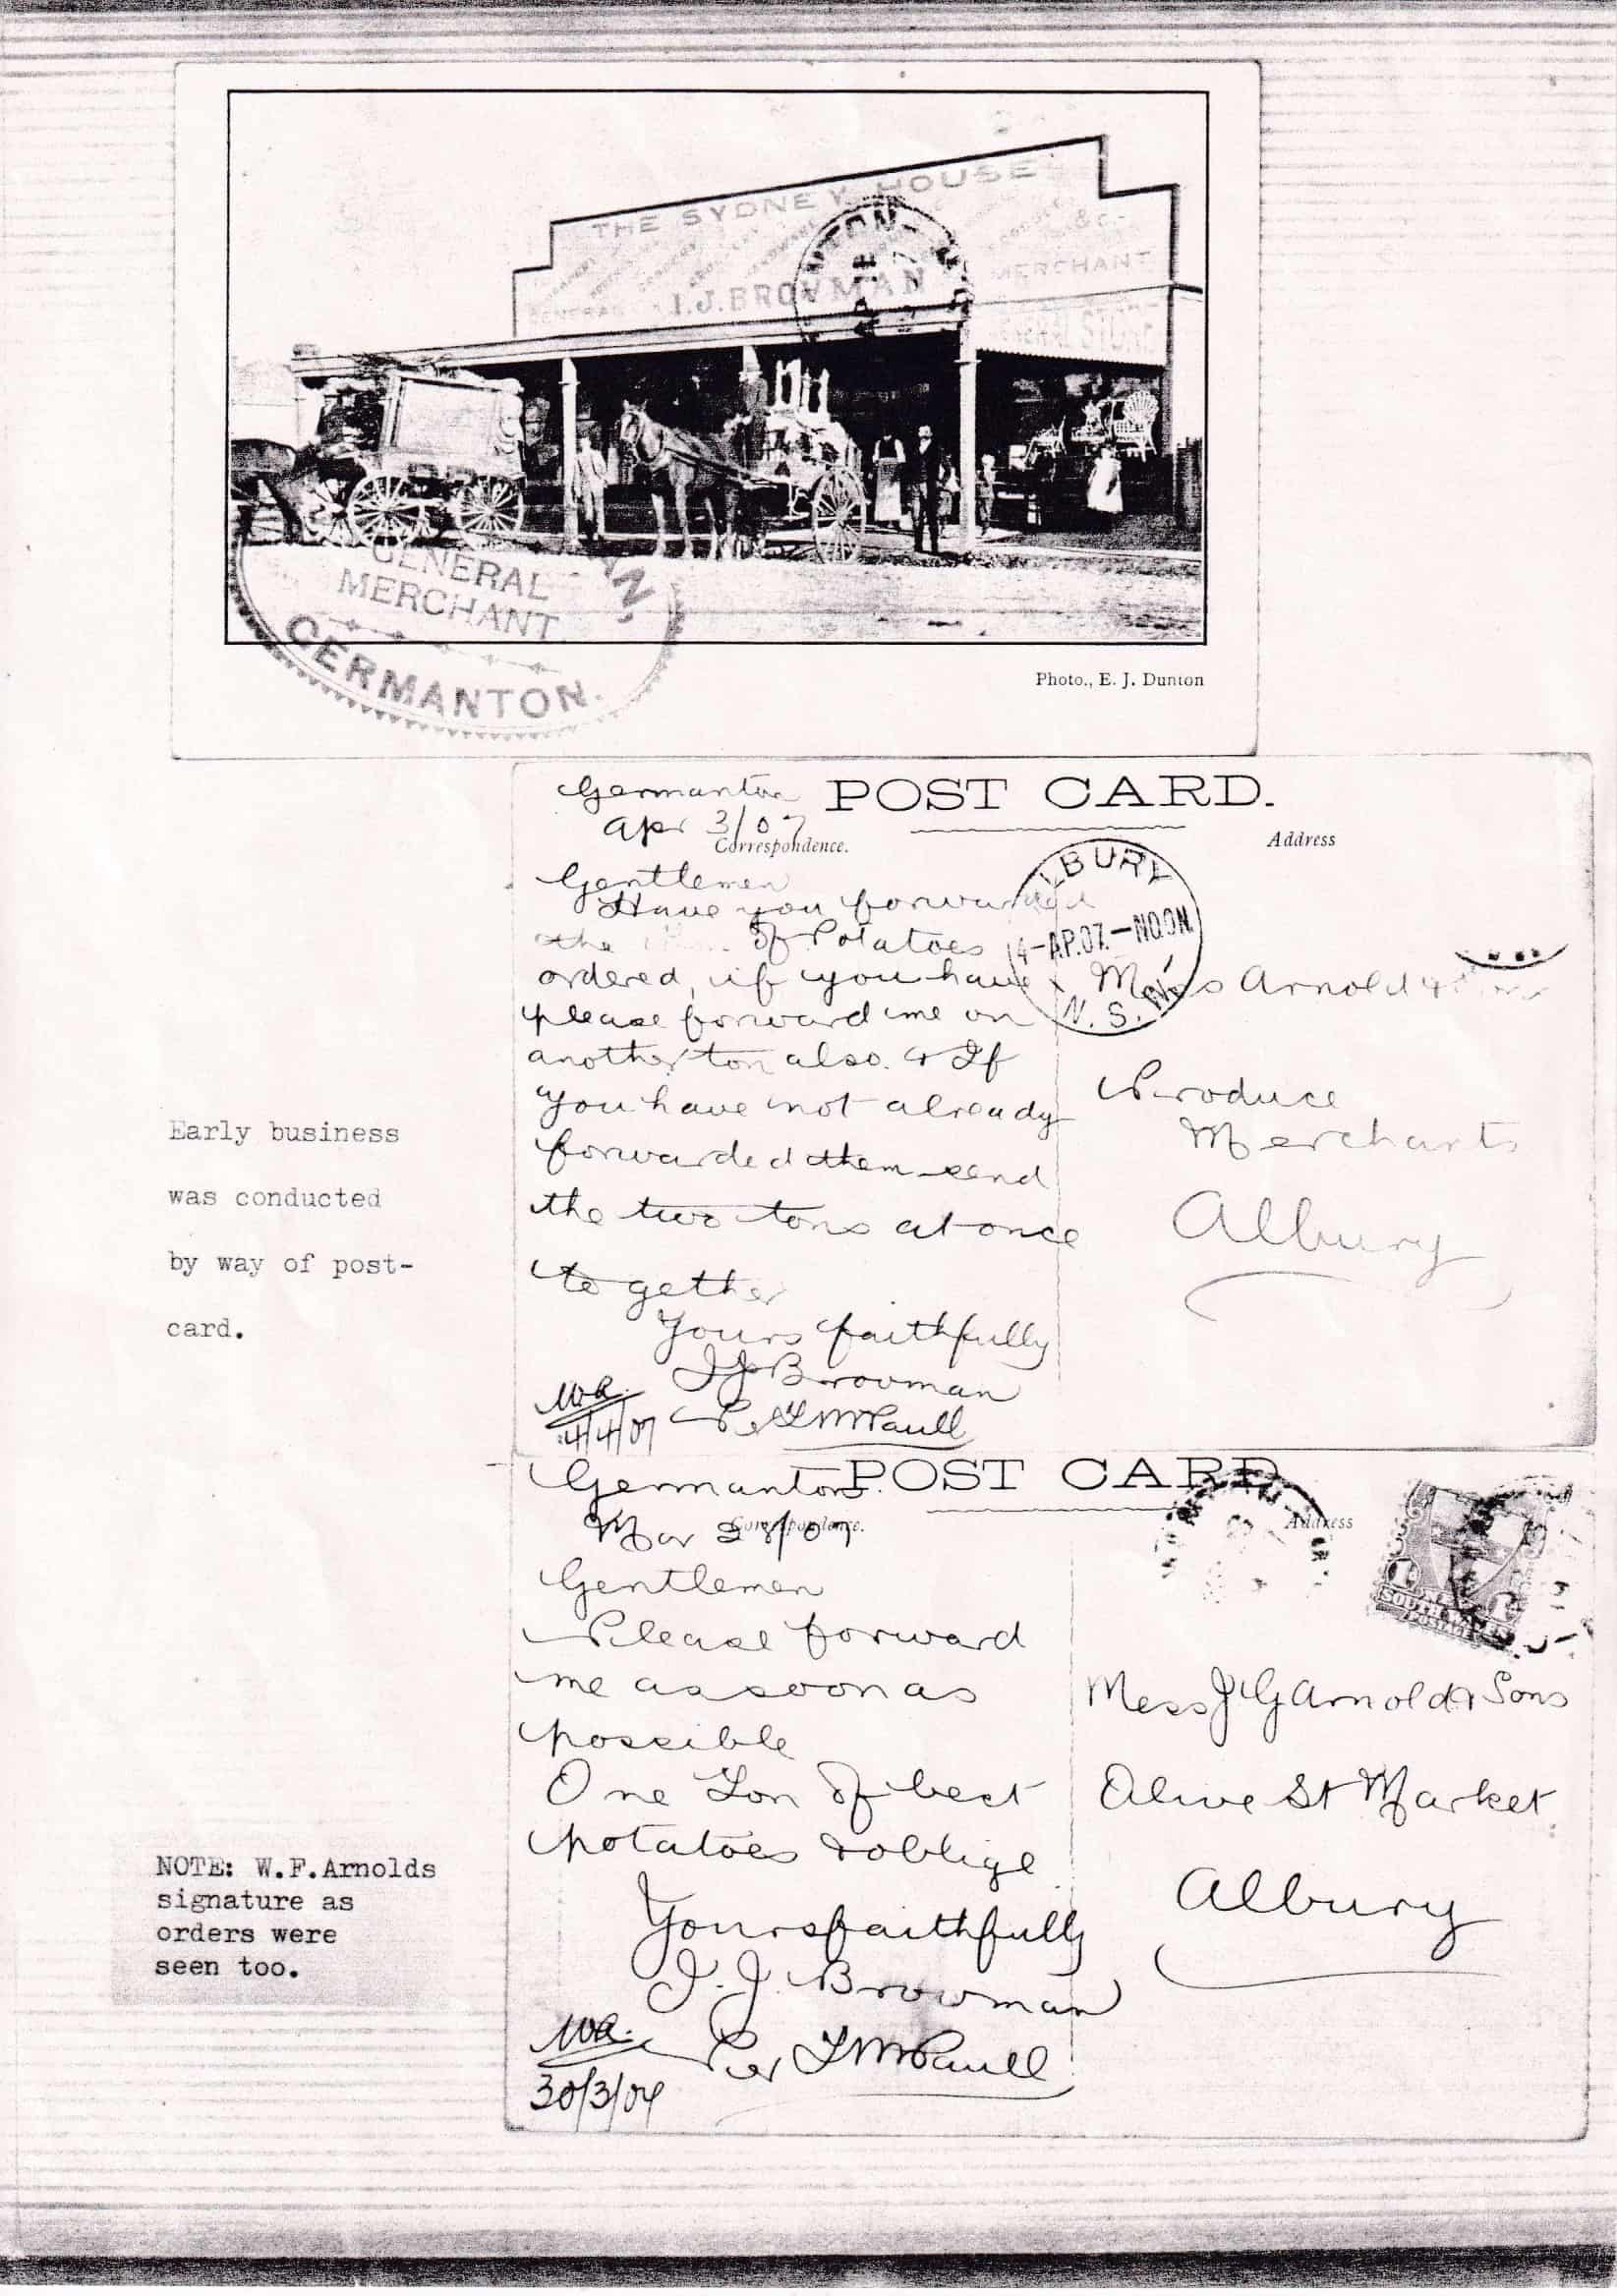 THE SYDNEY HOUSE
&c.
GENERAL I.J. BROWMAN MERCHANT
STORE
GENERAL
MERCHANT
GERMANTON.
Photo., E. J. Dunton
POST CARD.
Germanton
Apr 3/07
Correspondence.
Address
ALBURY
4-AP.07.-NOON
N.S.W.
Gentlemen
Have you forwarded
the of Potatoes
ordered, if you have
please forward me on
another ton also. & If
you have not already
forwarded them send
the two tons at once
together
Yours faithfully
I J Browman
Per
WA.
4/4/07
Arnold &
Produce
Merchants
Albury
Early business
was conducted
by way of post-
card.
POST CARD
Germanton
Mar 28/07
Correspondence.
Address
SOUTH WALES
POSTAGE
Gentlemen
Please forward
me as soon as
possible
One Ton Of best
potatoes & oblige
Yours faithfully
I. J. Browman
Per
WA.
30/3/07
Mess J G Arnold & Sons
Olive St Market
Albury
NOTE: W.F.Arnolds
signature as
orders were
seen too.